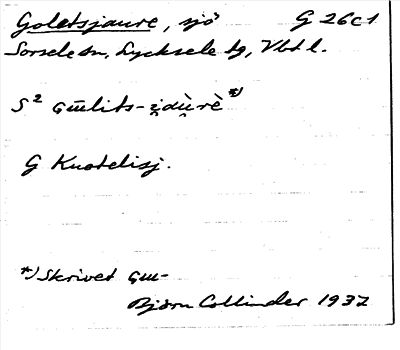 Goletsjaure, sjö G 26c1
Sorsele sn, Lycksele tg, Vbtl.
S² gɯ̄lits-i̯dù̯rè *)
G Kuotelisj.
*) Skrivet gɯ-
Björn Collinder 1937